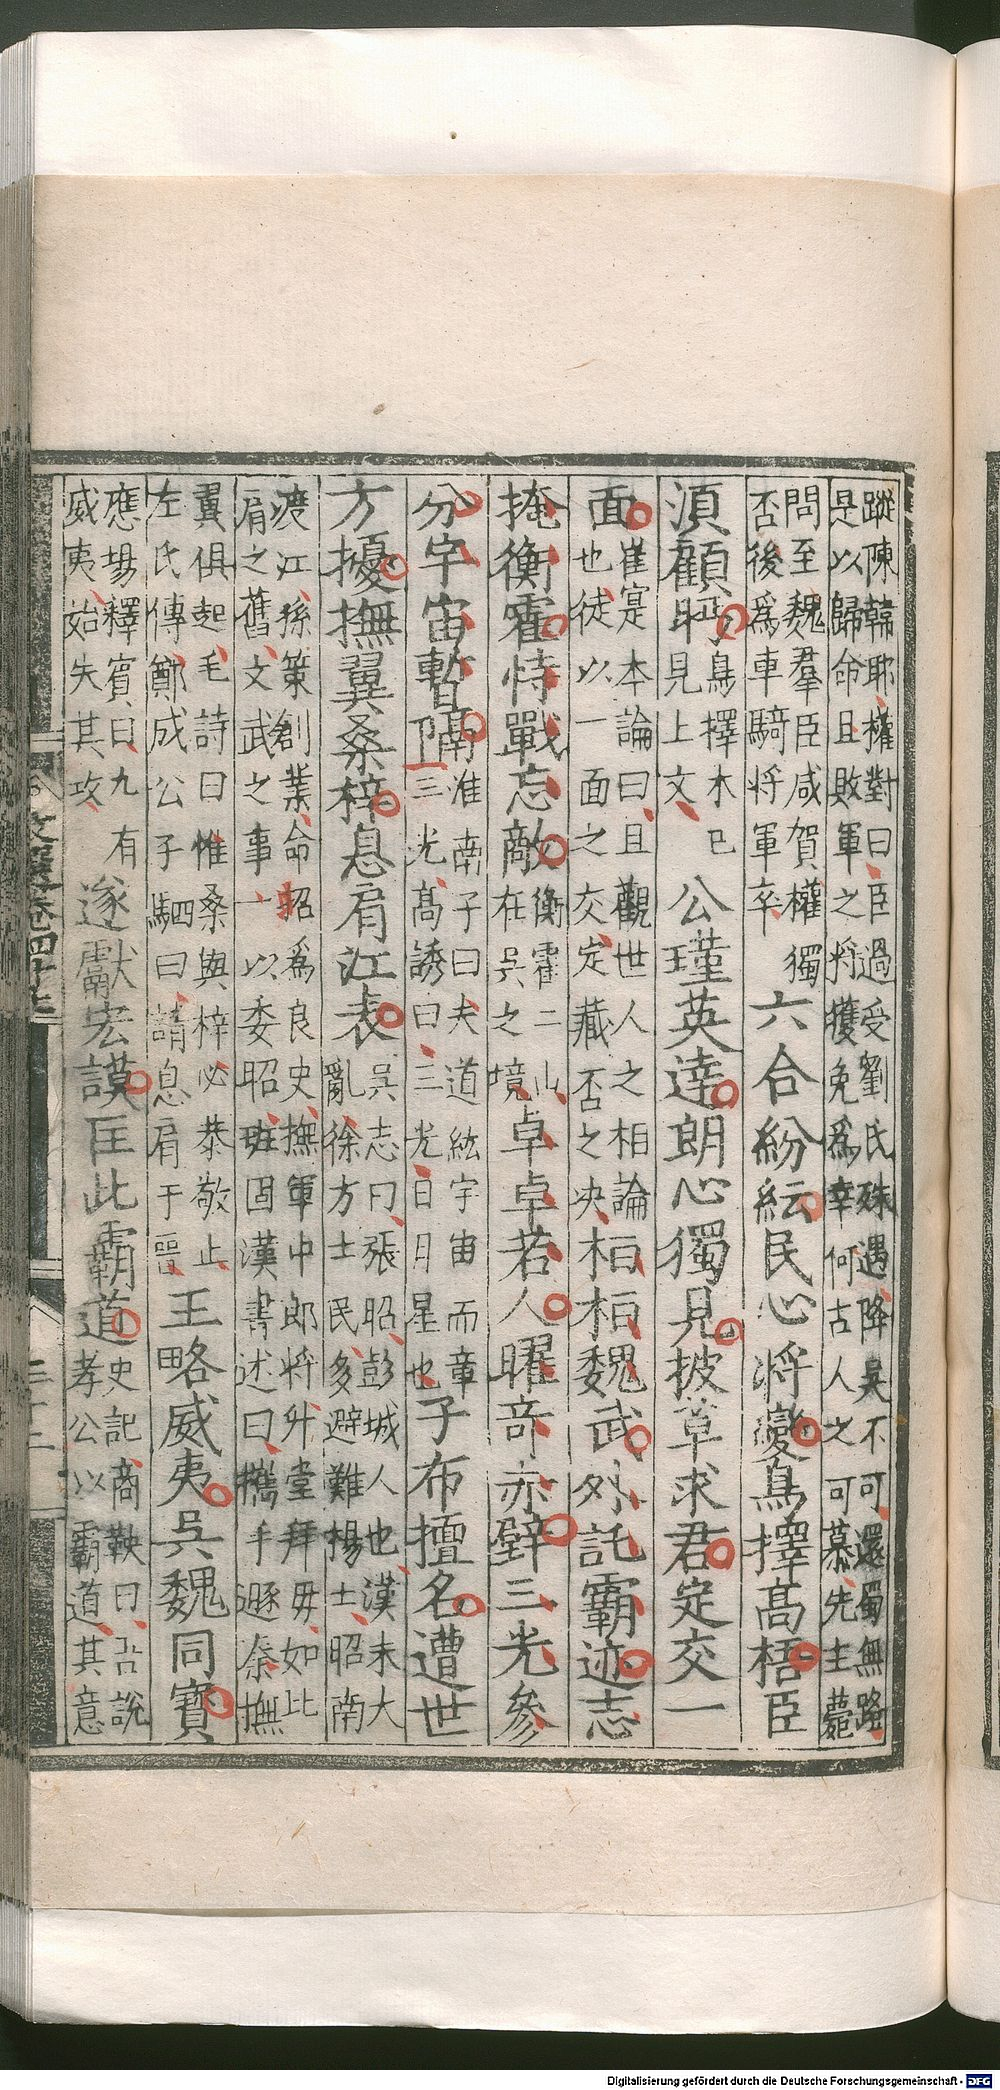 蹤陳韓耶權對曰臣過受劉氏殊遇降吳不可還蜀無路
是以歸命且敗軍之將獲免爲幸何古人之可慕先主薨
問至魏羣臣咸賀權獨
否後爲車騎将軍卒
六合紛紜民心將變鳥擇高梧臣
須顧眄
鳥擇木已
見上文
公瑾英達朗心獨見披草求君定交一
面
崔寔本論曰且觀世人之相論
也徒以一面之交定藏否之决
桓桓魏武外託霸迹志
掩衡霍恃戰忘敵
衡霍二山
在吳之境
卓卓若人曜竒赤壁三光參
分宇宙暫隔
淮南子曰夫道紘宇宙而章
三光高誘曰三光日月星也
子布擅名遭世
方擾撫翼桑梓息肩江表
吳志曰張昭彭城人也漢末大
亂徐方士民多避難揚士昭南
渡江孫策創業命昭爲良史撫軍中郎将外堂拜毋如比
肩之舊文武之事一以委昭班固漢書述曰攜手遯秦撫
翼俱起毛詩曰惟桑與梓必恭敬止
左氏傳鄭成公子駟曰請息肩于晉
王略威夷吳魏同寶
應場釋賓曰九有
威夷始失其攻
遂獻宏謨匡此霸道
史記商鞅曰吾說
孝公以霸道其意
Digitalisierung gefördert durch die Deutsche Forschungsgemeinschaft - DFG